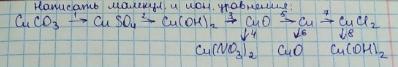 Написать молекул. и ион. уравнения:
CuCO₃ →¹ CuSO₄ →² Cu(OH)₂ →³ CuO →⁵ Cu →⁷ CuCl₂
↓4 ↓6 ↓8
Cu(NO₃)₂ CuO Cu(OH)₂